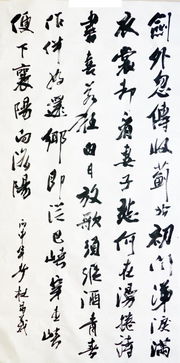 劍外忽傳收薊北初聞涕淚滿
衣裳却看妻子愁何在漫卷詩
書喜欲狂白日放歌須縱酒青春
作伴好還鄉即從巴峽穿巫峽
便下襄陽向洛陽